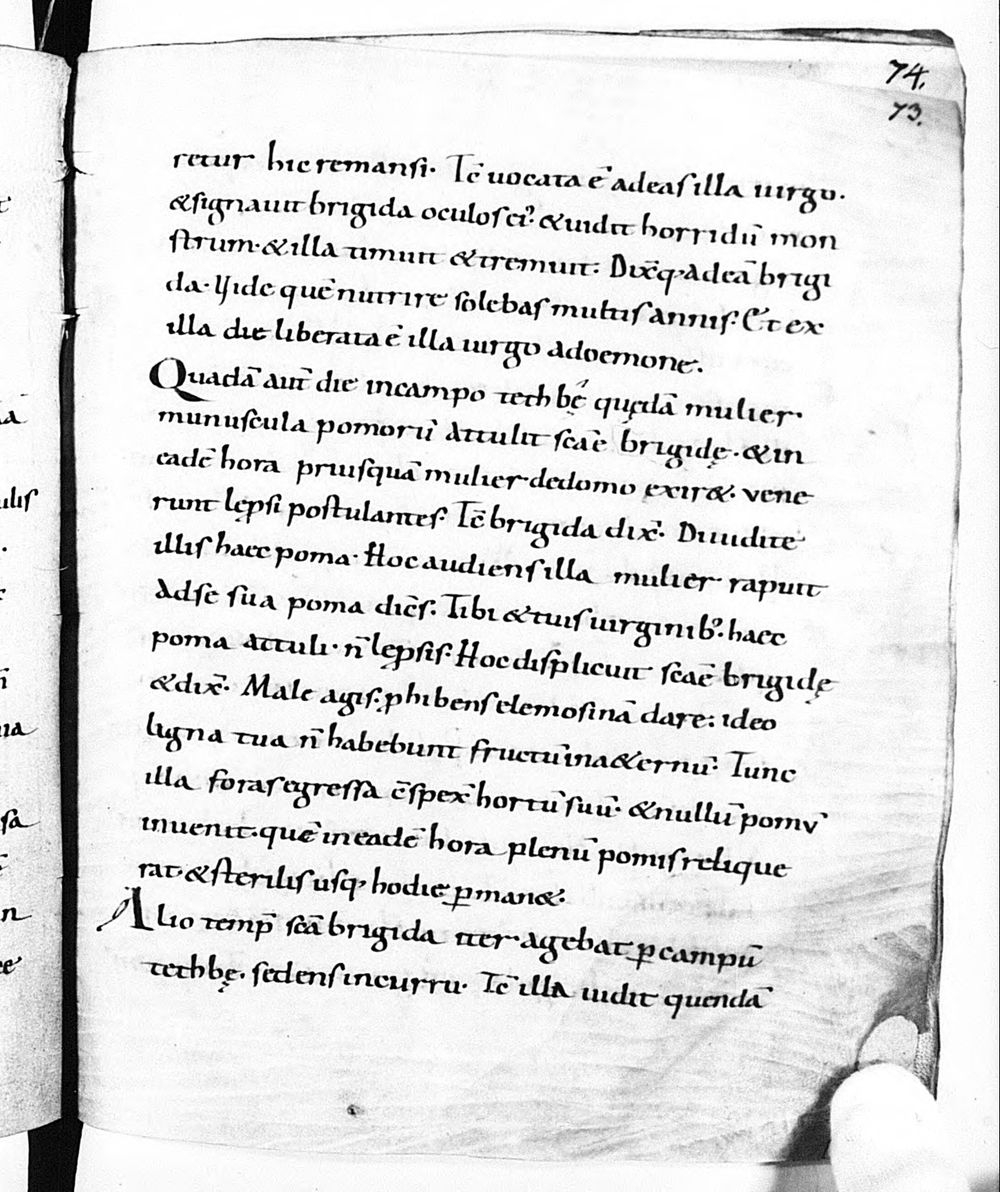 74.
73.
retur hic remansi. Tc̄ uocata ē adeas illa uirgo.
&signauit brigida oculos ei'. &uidit horridū mon
strum. &illa timuit &tremuit. Dix̄q, adeā brigi
da. Vide quē nutrire solebas multis annis. Et ex
illa die liberata ē illa uirgo adoemone.
Quadā aut̄ die incampo tethbę quędā mulier
munuscula pomorū attulit sc̄ae brigidę. &in
eadē hora priusquā mulier dedomo exir&. vene
runt lępsi postulantes. Tc̄ brigida dix̄. Diuidite
illis haec poma. Hoc audiens illa mulier rapuit
adse sua poma dic̄s. Tibi &tuis uirginib'. haec
poma attuli. n̄ lępsis. Hoc displicuit sc̄ae brigidę
&dix̄. Male agis. ꝓhibens elemosinā dare: ideo
ligna tua n̄ habebunt fructū ina&ernū. Tunc
illa foras egressa c̄spex̄ hortū suū. &nullū pomv̄
inuenit. quē ineadē hora plenū pomis relique
rat. &sterilis usq, hodie ꝑman&.
Alio temp̄ sc̄a brigida iter agebat ꝑ campū
tethbę. sedens incurru. Tc̄ illa uidit quendā